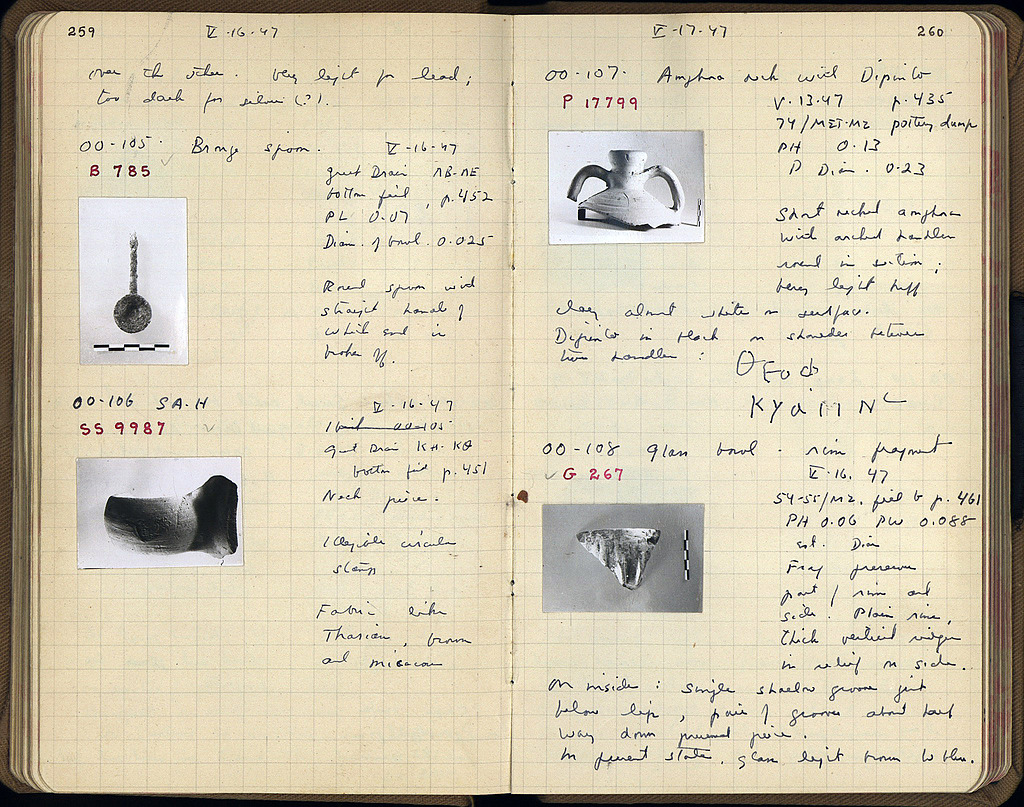 259
V·16·47
over the other. Very light for lead;
too dark for silver (?).
OO-105· Bronze spoon. V-16-47
B 785
great Drain
bottom fill, p.452
PL 0.07
Diam. of bowl. 0.025
Round spoon with
straight handle of
which end is
broken off.
OO-106 SA-H V-16-47
SS 9987
great Drain KH-KΘ
bottom fill p.451
Neck piece.
Illegible circular
stamp
Fabric like
Thasian, brown
and micaceous
V-17-47
260
OO-107· Amphora neck with Dipinto
P 17799
V·13·47 p.435
74/MΣT-MZ pottery dump
PH 0.13
P Diam. 0.23
Short necked amphora
with arched handles
round in section;
very light buff
clay almost white on surface.
Dipinto in black on shoulder between
two handles:
OO-108 Glass bowl - rim fragment
G 267
V·16·47
54-55/MZ, fill b p.461
PH 0.06 PW 0.088
est. Diam
Frag preserves
part of rim and
side. Plain rim,
thick vertical ridges
in relief on side.
On inside: single shallow groove just
below lip, pair of grooves about half
way down preserved piece.
In present state, glass light brown to blue.